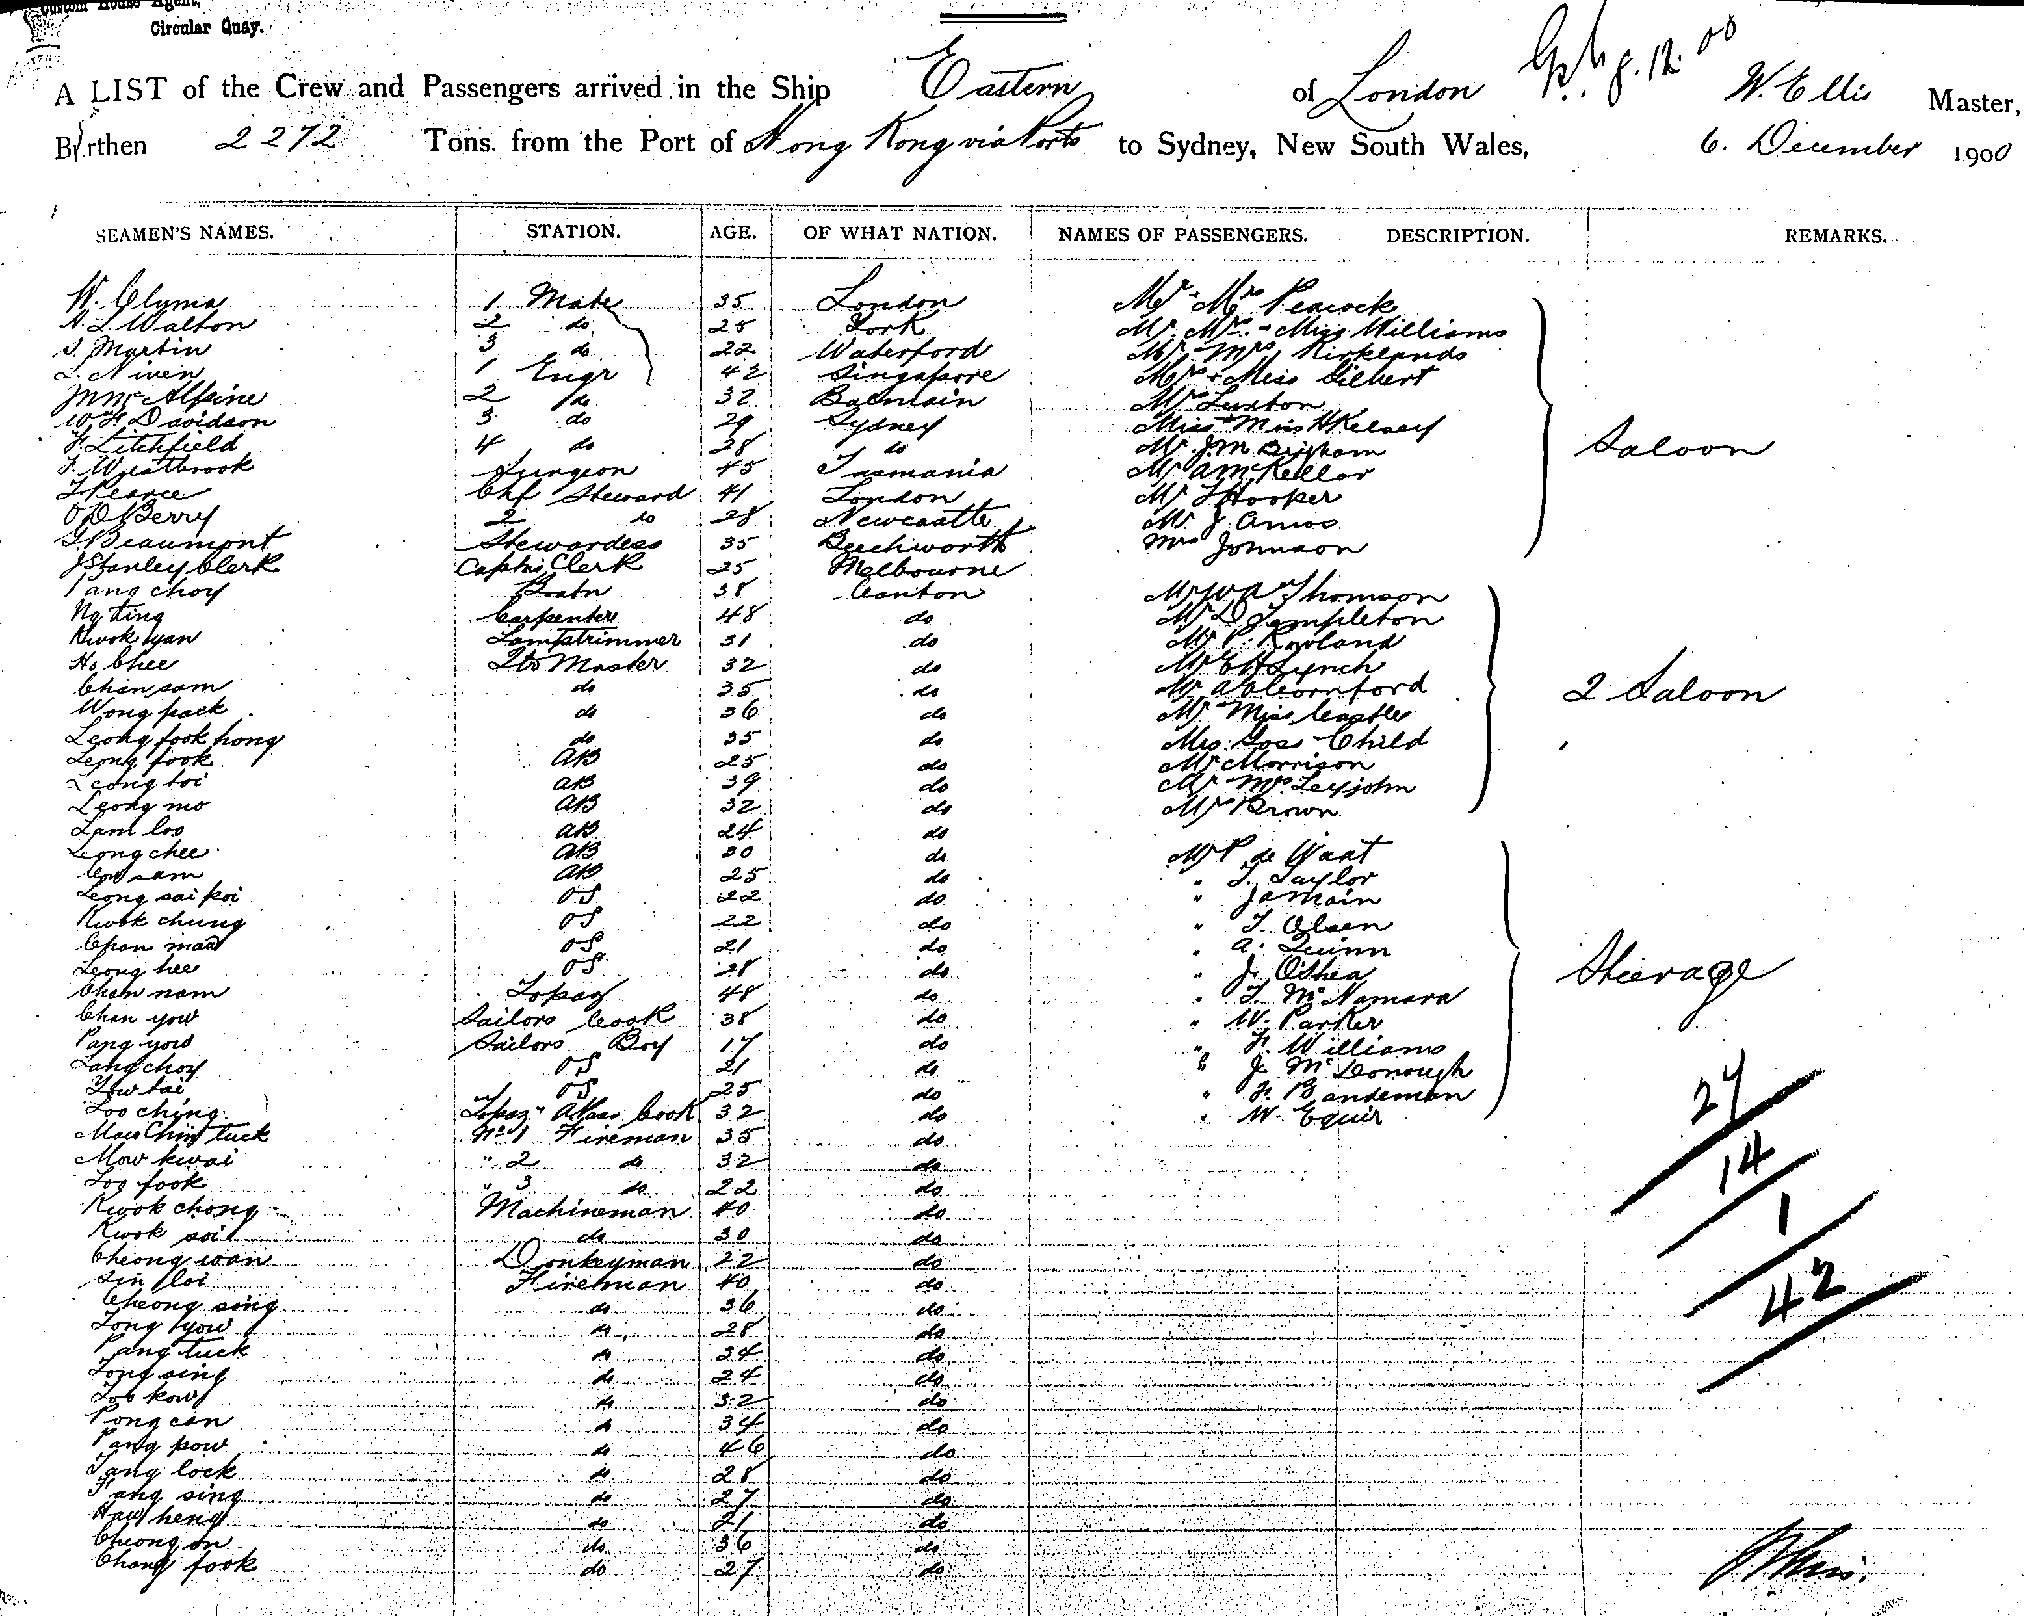 Custom House Agent,
Circular Quay.
A LIST of the Crew and Passengers arrived in the Ship Eastern of London W. Ellis Master,
Burthen 2272 Tons. from the Port of Hong Kong via Ports to Sydney, New South Wales, 6. December 1900
SEAMEN'S NAMES. STATION. AGE. OF WHAT NATION. NAMES OF PASSENGERS. DESCRIPTION. REMARKS.
W. Clyma 1 Mate 35 London Mr & Mrs Peacock
Walton 2 do 25 York Mr. Mrs. & Miss Williams
Martin 3 do 22 Waterford Mr & Mrs Kirklands
Niven 1 Engr 42 Singapore Mrs & Miss Gilbert
McAlpine 2 do 32 Balmain Mr Luxton
Davidson 3 do 29 Sydney Miss Miss H Kelsey
Litchfield 4 do 28 do Mr J.M. Brigham Saloon
Westbrook Surgeon 45 Tasmania Mr A McKellar
Pearce Chf Steward 41 London Mr Hooper
Berry 2 do 28 Newcastle Mr J. Amos
Beaumont Stewardess 35 Beechworth Mrs Johnson
J Stanley Clerk Captns Clerk 25 Melbourne
Pang choy Boatn 38 Canton Mr Thomson
Ng ting Carpenter 48 do Mr D Templeton
Kwok yan Lamptrimmer 31 do Mr P. Rowland
Ho Chee Qtr Master 32 do Mr Lynch
Chan sam do 35 do Mr Cornford 2 Saloon
Wong pack do 36 do Mr Miss Castles
Leong fook hong do 35 do Mrs Goss & Child
Leong fook AB 25 do Mr Morrison
Leong toi AB 39 do Mr & Mrs Leyjohn
Leong mo AB 32 do Mr Brown
Lam loo AB 24 do
Leong chee AB 30 do Mr P de Waat
sam AB 25 do " T. Taylor
Leong sai koi OS 22 do " Jamain
Kwok chung OS 22 do " T. Olsen
Chan man OS 21 do " A. Quinn
Leong hee OS 28 do " J. O'Shea Steerage
Chan nam Topaz 48 do " T. McNamara
Chan yow Sailors Cook 38 do " W. Parker
Pang yow Sailors Boy 17 do " F. Williams
Tang choy OS 21 do " J. McDonough
Yow tai OS 25 do " F. Bandeman
Loo ching Topaz & Cook 32 do " W. Equir
Mow Chin tuck No 1 Fireman 35 do
Mow kwai " 2 do 32 do
Loo fook " 3 do 22 do
Kwok chong Machineman 40 do
Kwok soil do 30 do
Cheong wan Donkeyman 22 do
Sin loi Fireman 40 do
Cheong sing do 36 do
Tong yow do 28 do
Pang tuck do 34 do
Tong sing do 24 do
Loo kow do 32 do
Pong can do 34 do
Pang pow do 46 do
Tang lock do 28 do
Tang sing do 27 do
heng do 21 do
Cheong on do 36 do
Chang fook do 27 do
27
14
1
42